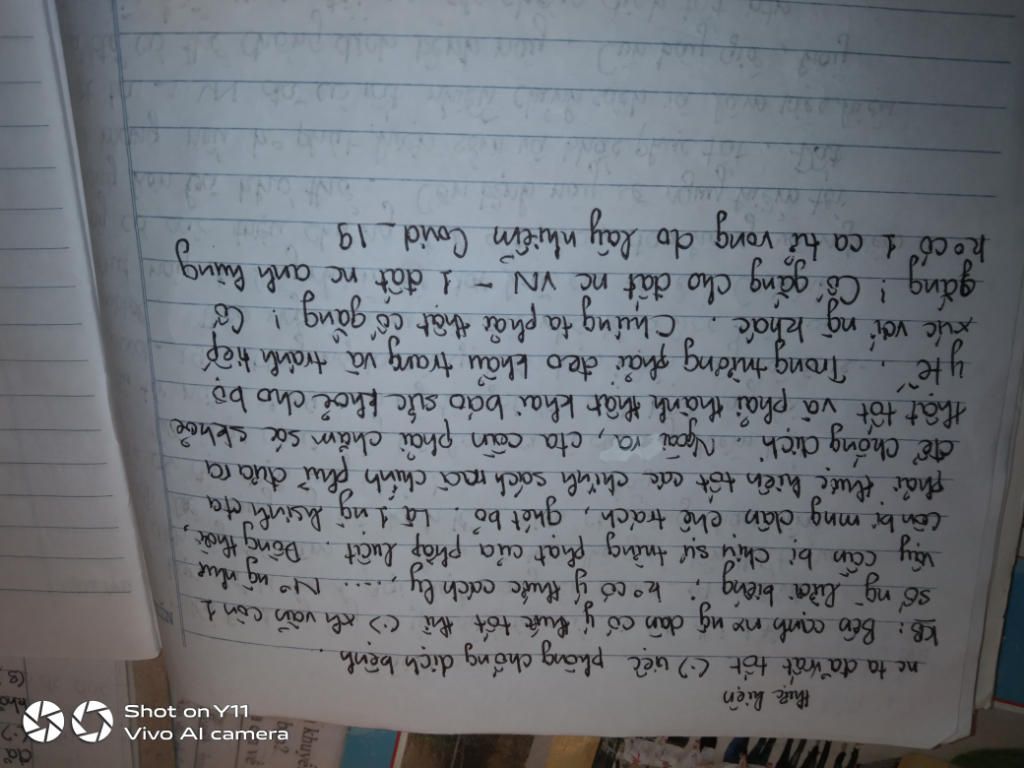 thực hiện
nc ta đã rất tốt (-) việc phòng chống dịch bệnh.
KB: Bên cạnh nx ng dân có ý thức tốt thì (-) xh vẫn còn 1
số ng lười biếng, k° có ý thức cách ly, .... N° ng như
vậy cần bị chịu sự trừng phạt của pháp luật. Đồng thời,
cần bị mng dân chê trách, ghét bỏ. Là 1 ng hsinh cta
phải thực hiện tốt các chính sách mà chính phủ đưa ra
để chống dịch. Ngoài ra, cta cần phải chăm sóc skhoẻ
thật tốt và phải thành thật khai báo sức khoẻ cho bộ
y tế. Trong trường phải đeo khẩu trang và tránh tiếp
xúc với ng khác. Chúng ta phải thật cố gắng! Cố
gắng! Cố gắng cho đất nc VN - 1 đất nc anh hùng
k° có 1 ca tử vong do lây nhiễm Covid-19
Shot on Y11
Vivo AI camera